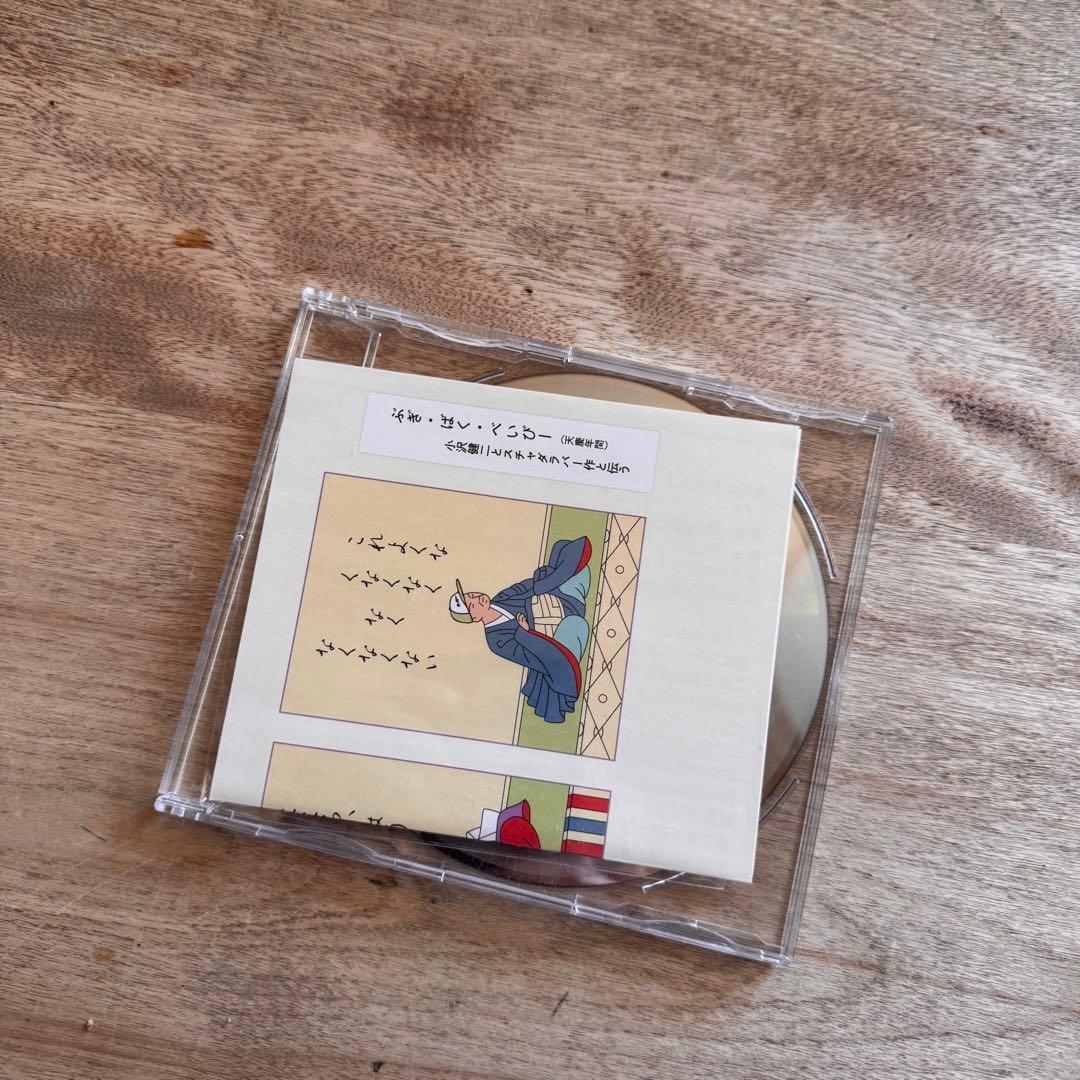 ぶぎ・ばく・べいびー（天慶年間）
小沢健二とスチャダラパー作と伝う
これよくな
くなくなく
なく
なくなくない